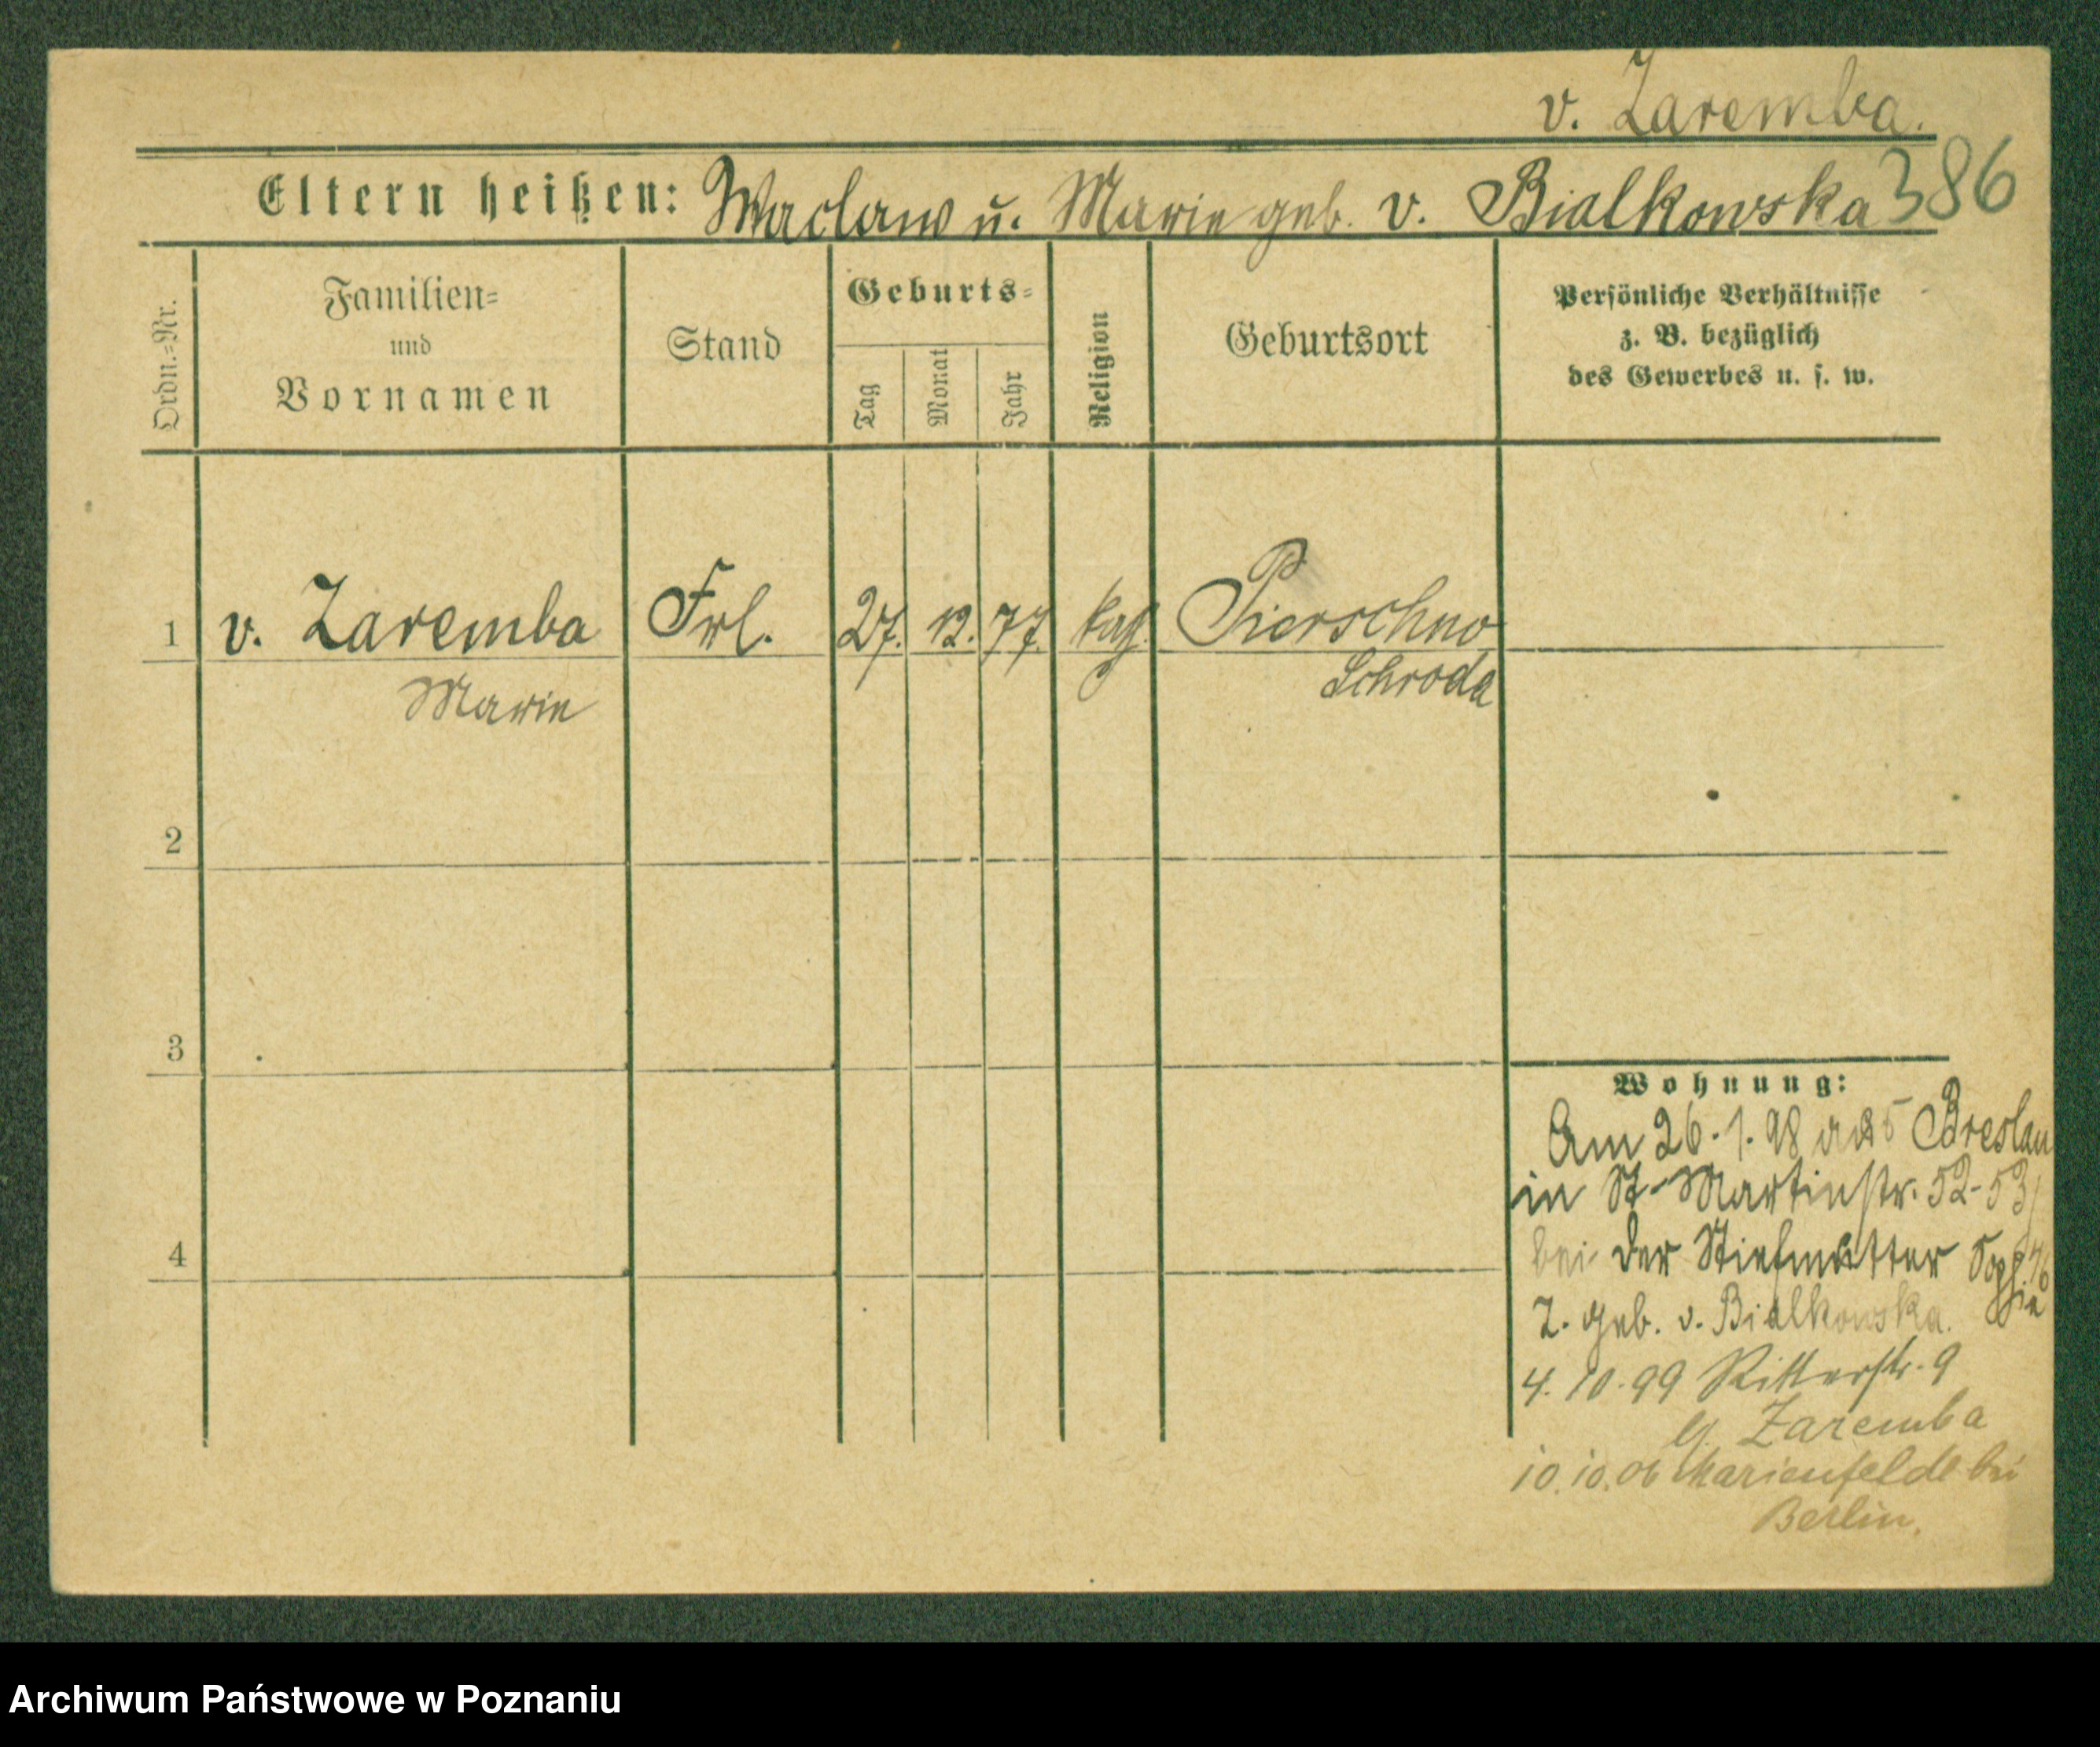 v. Zaremba.
Eltern heißen: Waclaw u. Marie geb. v. Bialkowska 386
Ordn.=Nr.
Familien=
und
Vornamen
Stand
Geburts=
Tag
Monat
Jahr
Religion
Geburtsort
Persönliche Verhältnisse
z. B. bezüglich
des Gewerbes u. s. w.
1 v. Zaremba Frl. 27. 12. 77. kath. Pierschno
Marie Schroda
2
3
4
Wohnung:
Am 26.1.98 aus Breslau
in St. Martinstr. 52-53
bei der Stiefmutter Sophie
Z. geb. v. Bialkowska.
4.10.99 Ritterstr. 9
Zaremba
10.10.06 Marienfelde bei
Berlin.
Archiwum Państwowe w Poznaniu